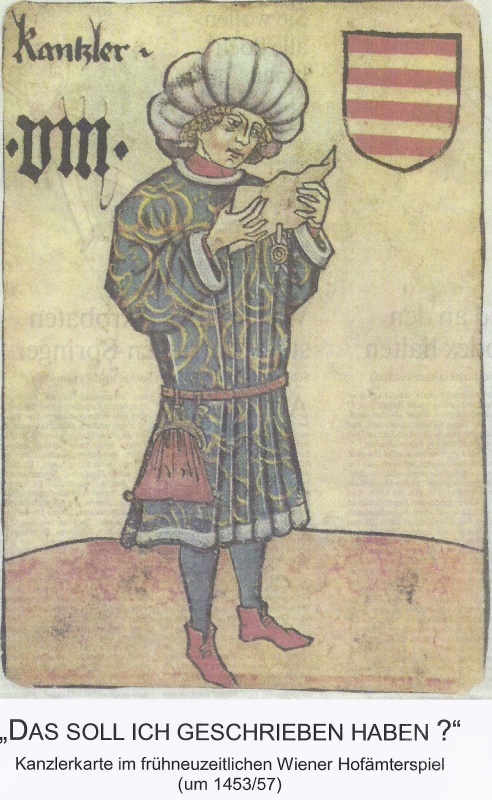 Kantzler
·VIII·
„DAS SOLL ICH GESCHRIEBEN HABEN ?“
Kanzlerkarte im frühneuzeitlichen Wiener Hofämterspiel
(um 1453/57)